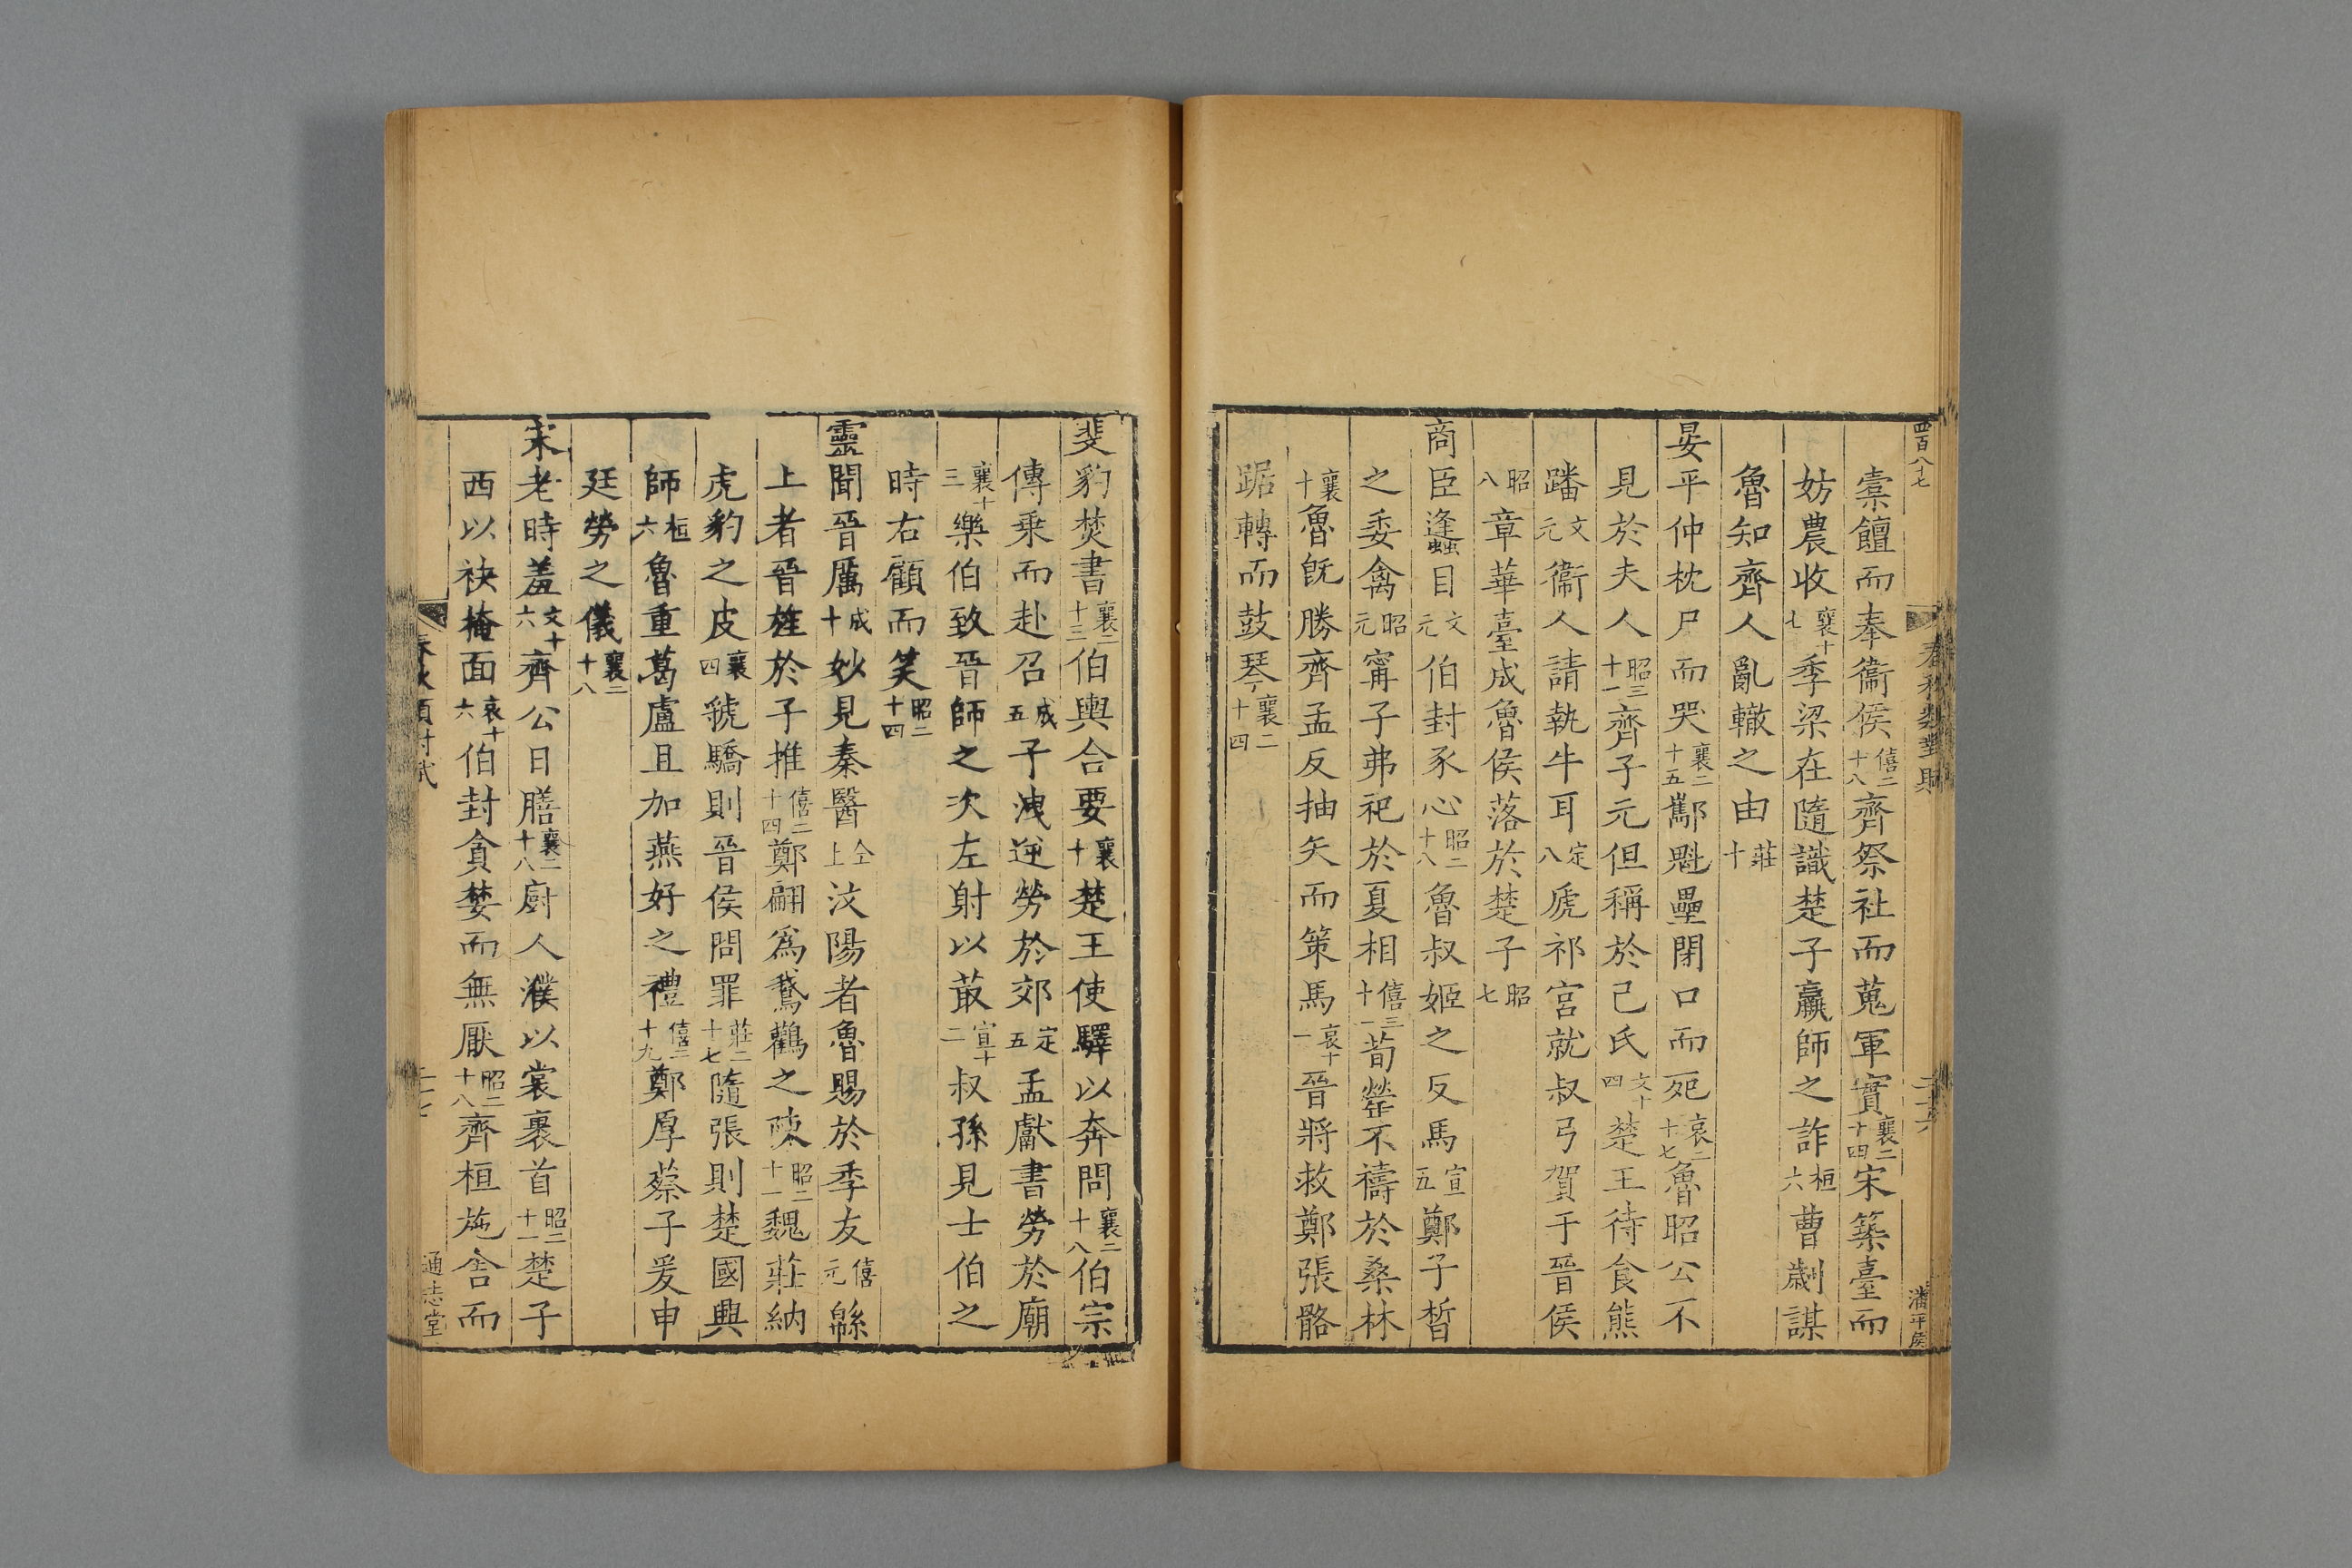 四百八十七
春秋類對賦
二十六
潘平侯
橐饘而奉衞侯僖二十八齊祭社而蒐軍實襄二十四宋築臺而
妨農收襄十七季梁在隨識楚子羸師之詐桓六曹劌謀
魯知齊人亂轍之由莊十
晏平仲枕尸而哭襄二十五酅魁壘閉口而死哀二十七魯昭公不
見於夫人昭三十一齊子元但稱於己氏文十四楚王待食熊
蹯文元衞人請執牛耳定八虒祁宮就叔弓賀于晉侯
昭八章華臺成魯侯落於楚子昭七
商臣逢䘉目文元伯封豕心昭二十八魯叔姬之反馬宣五鄭子晳
之委禽昭元甯子弗祀於夏相僖三十一荀罃不禱於桑林
襄十魯旣勝齊孟反抽矢而策馬哀十一晉將救鄭張骼
踞轉而鼓琴襄二十四
斐豹焚書襄二十三伯輿合要襄十楚王使驛以奔問襄二十八伯宗
傳乗而赴召成五子洩逆勞於郊定五孟獻書勞於廟
襄十三樂伯致晉師之次左射以菆宣十二叔孫見士伯之
時右顧而笑昭二十四
靈聞晉厲成十妙見秦醫仝上汶陽者魯賜於季友僖元緜
上者晉旌於子推僖二十四鄭翩爲鵞鸛之陳昭二十一魏莊納
虎豹之皮襄四虢驕則晉侯問罪莊二十七隨張則楚國興
師桓六魯重葛盧且加燕好之禮僖二十九鄭厚蔡子爰申
廷勞之儀襄二十八
宋老時羞文十六齊公日膳襄二十八廚人濮以裳裹首昭二十一楚子
西以袂掩面哀十六伯封貪婪而無厭昭二十八齊桓施舎而
二十七
通志堂